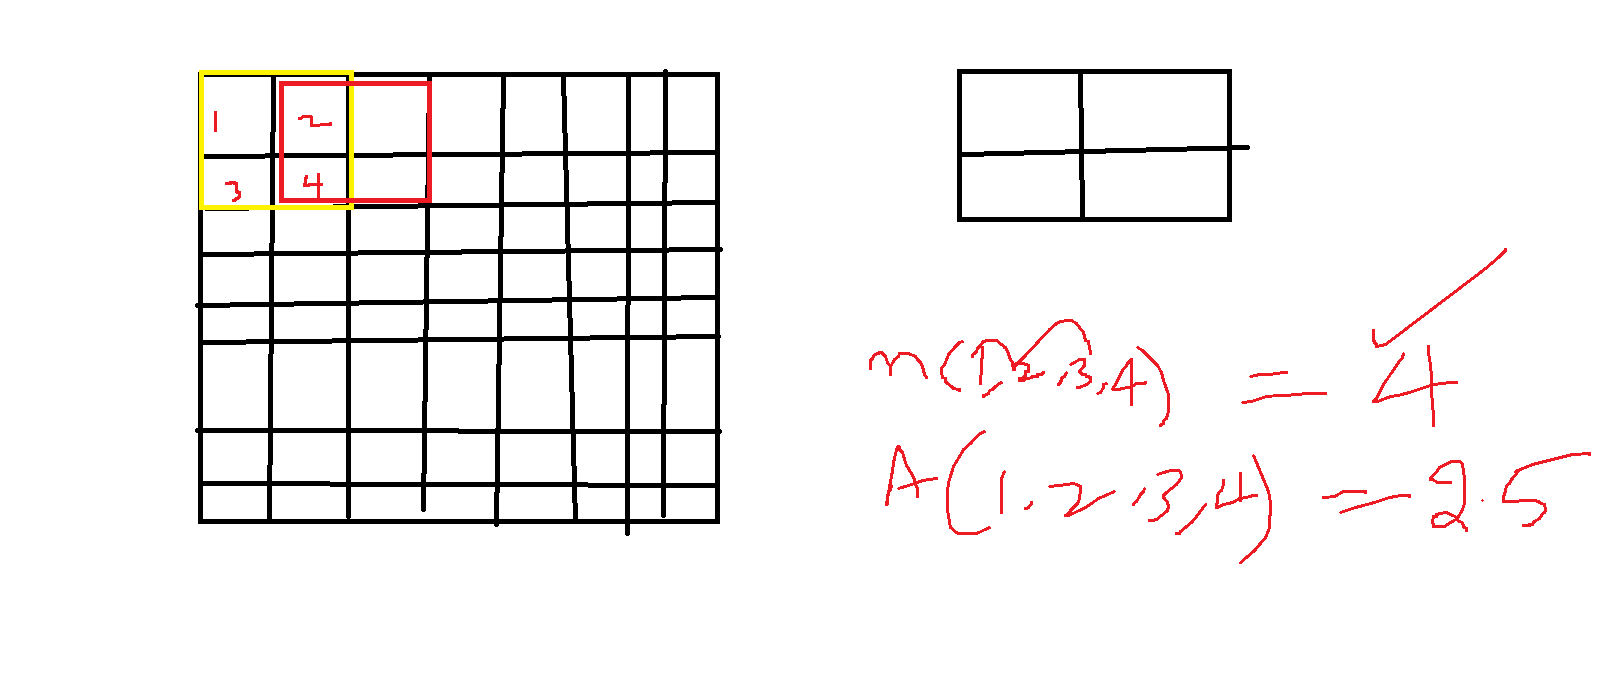 1 2
3 4
m(1,2,3,4) = 4
A(1,2,3,4) = 2.5